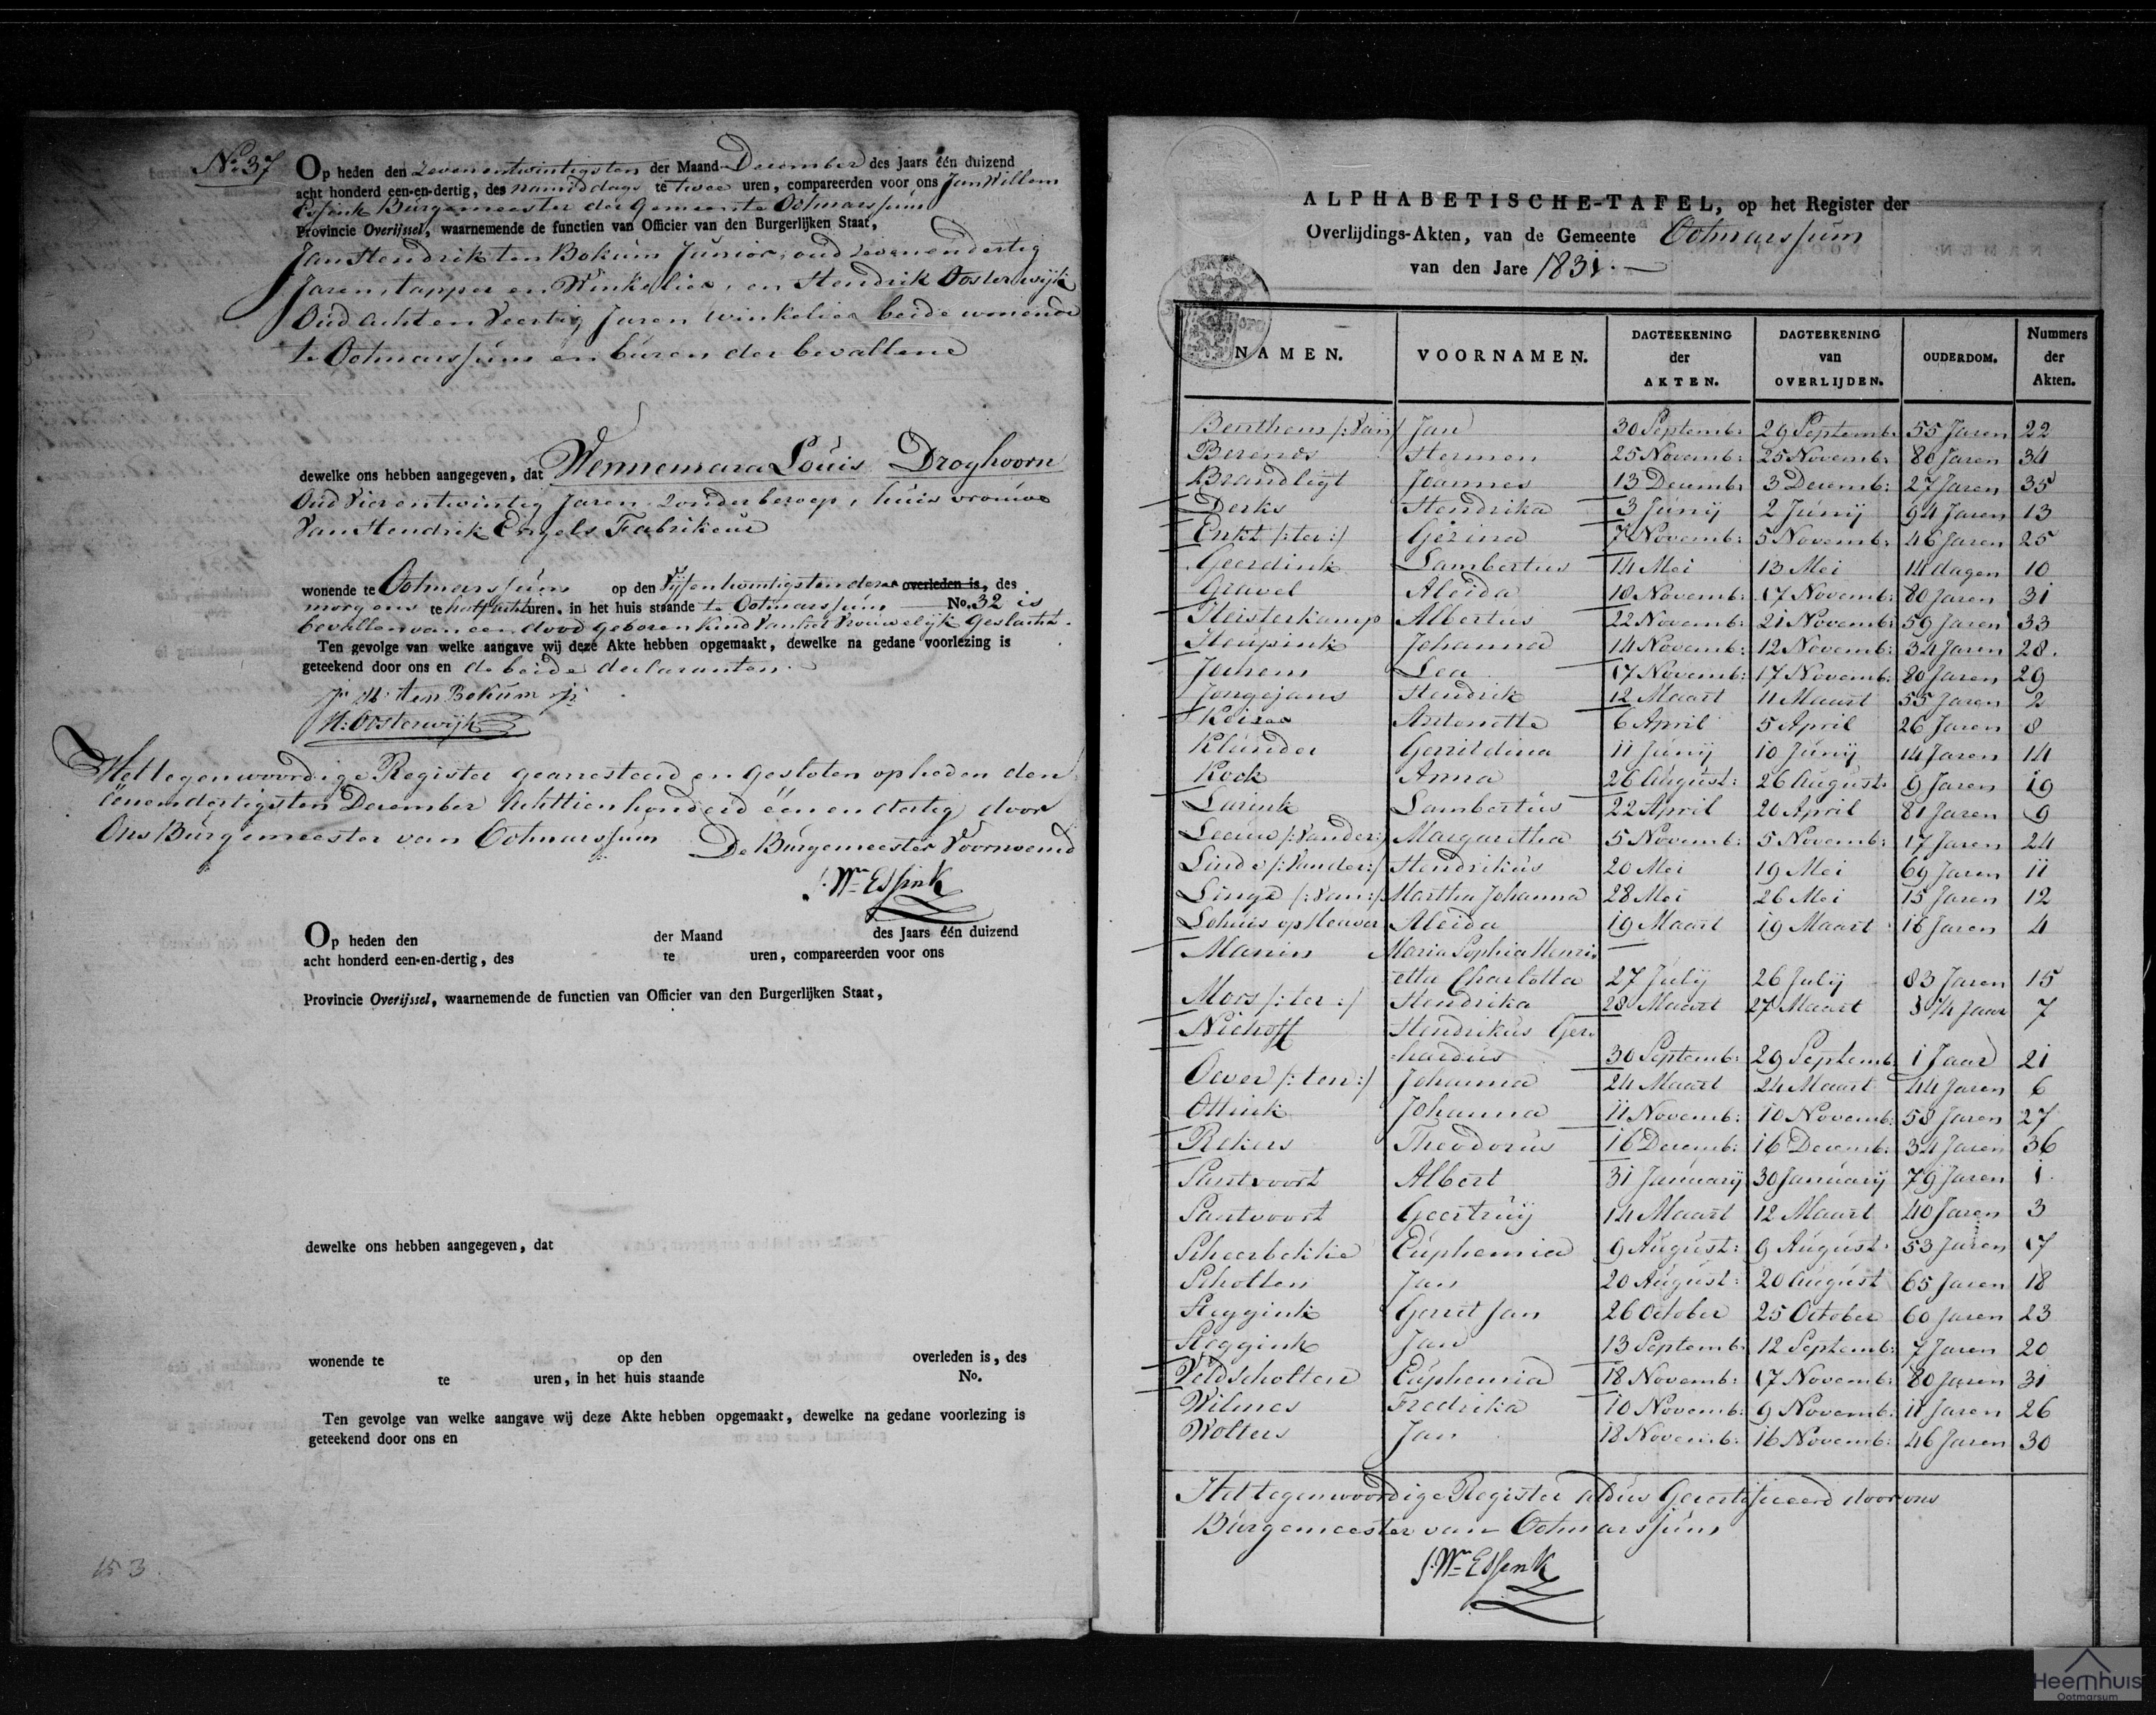 No. 37
Op heden den zevenentwintigsten der Maand December des Jaars één duizend
acht honderd een-en-dertig, des namiddags te twee uren, compareerden voor ons Jan Willem
Essink Burgemeester der Gemeente Ootmarssum
Provincie Overijssel, waarnemende de functien van Officier van den Burgerlijken Staat,
Jan Hendrik ten Bokum Junior, oud zevenendertig
Jaren, tapper en Winkelier, en Hendrik Oosterwijk
Oud acht en Veertig Jaren winkelier beide wonende
te Ootmarssum en buren der bevallene
dewelke ons hebben aangegeven, dat Wennemara Louis Droghoorn
Oud Vierentwintig Jaren zonder beroep, huisvrouwe
Van Hendrik Engels Fabrikeur
wonende te Ootmarssum op den Vijfentwintigsten dezer overleden is, des
morgens te half acht uren, in het huis staande te Ootmarssum No. 32 is
bevallen van een dood geboren Kind van het Vrouwelijk Geslacht.
Ten gevolge van welke aangave wij deze Akte hebben opgemaakt, dewelke na gedane voorlezing is
geteekend door ons en de beide declaranten.
J: H: ten Bokum jr
H: Oosterwijk
Het tegenwoordige Register gearresteerd en gesloten op heden den
Eenendertigsten December Achttienhonderd één en dertig door
Ons Burgemeester van Ootmarssum De Burgemeester Voornoemd
J. Wm Essink
Op heden den der Maand des Jaars één duizend
acht honderd een-en-dertig, des te uren, compareerden voor ons
Provincie Overijssel, waarnemende de functien van Officier van den Burgerlijken Staat,
dewelke ons hebben aangegeven, dat
wonende te op den overleden is, des
te uren, in het huis staande No.
Ten gevolge van welke aangave wij deze Akte hebben opgemaakt, dewelke na gedane voorlezing is
geteekend door ons en
153
ALPHABETISCHE-TAFEL, op het Register der
Overlijdings-Akten, van de Gemeente Ootmarssum
van den Jare 1831.
NAMEN. VOORNAMEN. DAGTEEKENING der AKTEN. DAGTEEKENING van OVERLIJDEN. OUDERDOM. Nummers der Akten.
Benthem /:Van/ Jan 30 Septemb: 29 Septemb: 55 Jaren 22
Berends Hermen 25 Novemb: 25 Novemb: 80 Jaren 34
Brandligt Joannes 13 Decemb: 3 Decemb: 27 Jaren 35
Derks Hendrika 3 Junij 2 Junij 94 Jaren 13
Enkt /:ter:/ Gezina 7 Novemb: 5 Novemb: 46 Jaren 25
Geerdink Lambertus 14 Mei 13 Mei 14 dagen 10
Gravel Aleida 10 Novemb: 17 Novemb: 80 Jaren 31
Heisterkamp Albertus 22 Novemb: 21 Novemb: 59 Jaren 33
Heupink Johanna 14 Novemb: 12 Novemb: 34 Jaren 28.
Jochem Lea 17 Novemb: 17 Novemb: 80 Jaren 29
Jongejans Hendrik 12 Maart 11 Maart 55 Jaren 2
Keizer Antonette 6 April 5 April 26 Jaren 8
Klunder Gerritdina 11 Junij 10 Junij 14 Jaren 14
Kock Anna 26 August: 26 August: 9 Jaren 19
Larink Lambertus 22 April 20 April 81 Jaren 9
Leeuw /:Vander:/ Margaretha 5 Novemb: 5 Novemb: 17 Jaren 24
Linde /:Vander:/ Hendrikus 20 Mei 19 Mei 69 Jaren 11
Linge /:Van:/ Martha Johanna 28 Mei 26 Mei 15 Jaren 12
Lohuis op Heuver Aleida 19 Maart 19 Maart 16 Jaren 4
Manin Maria Sophia Henri
etta Charlotta 27 Julij 26 Julij 83 Jaren 15
Moos /:ter:/ Hendrika 28 Maart 27 Maart Jaar 7
Niehoff Hendrikus Ger
hardus 30 Septemb: 29 Septemb: 1 Jaar 21
Oever /:ten:/ Johanna 24 Maart 24 Maart 44 Jaren 6
Ottink Johanna 11 Novemb: 10 Novemb: 58 Jaren 27
Rekers Theodorus 16 Decemb: 16 Decemb: 34 Jaren 36
Santvoort Albert 31 Januarij 30 Januarij 79 Jaren 1.
Santvoort Geertruij 14 Maart 12 Maart 40 Jaren 3
Scheerbekke Euphemia 9 August: 9 August: 53 Jaren 17
Scholten Jan 20 August: 20 August 65 Jaren 18
Steggink Gerrit Jan 26 October 25 October 60 Jaren 23
Steggink Jan 13 Septemb: 12 Septemb: 7 Jaren 20
Veldscholten Euphemia 18 Novemb: 17 Novemb: 80 Jaren 31
Wilmes Fredrika 10 Novemb: 9 Novemb: 11 Jaren 26
Wolters Jan 18 Novemb: 16 Novemb: 46 Jaren 30
Het tegenwoordige Register aldus Gecertificeerd door ons
Burgemeester van Ootmarssum
J. Wm Essink
Heemhuis
Ootmarsum